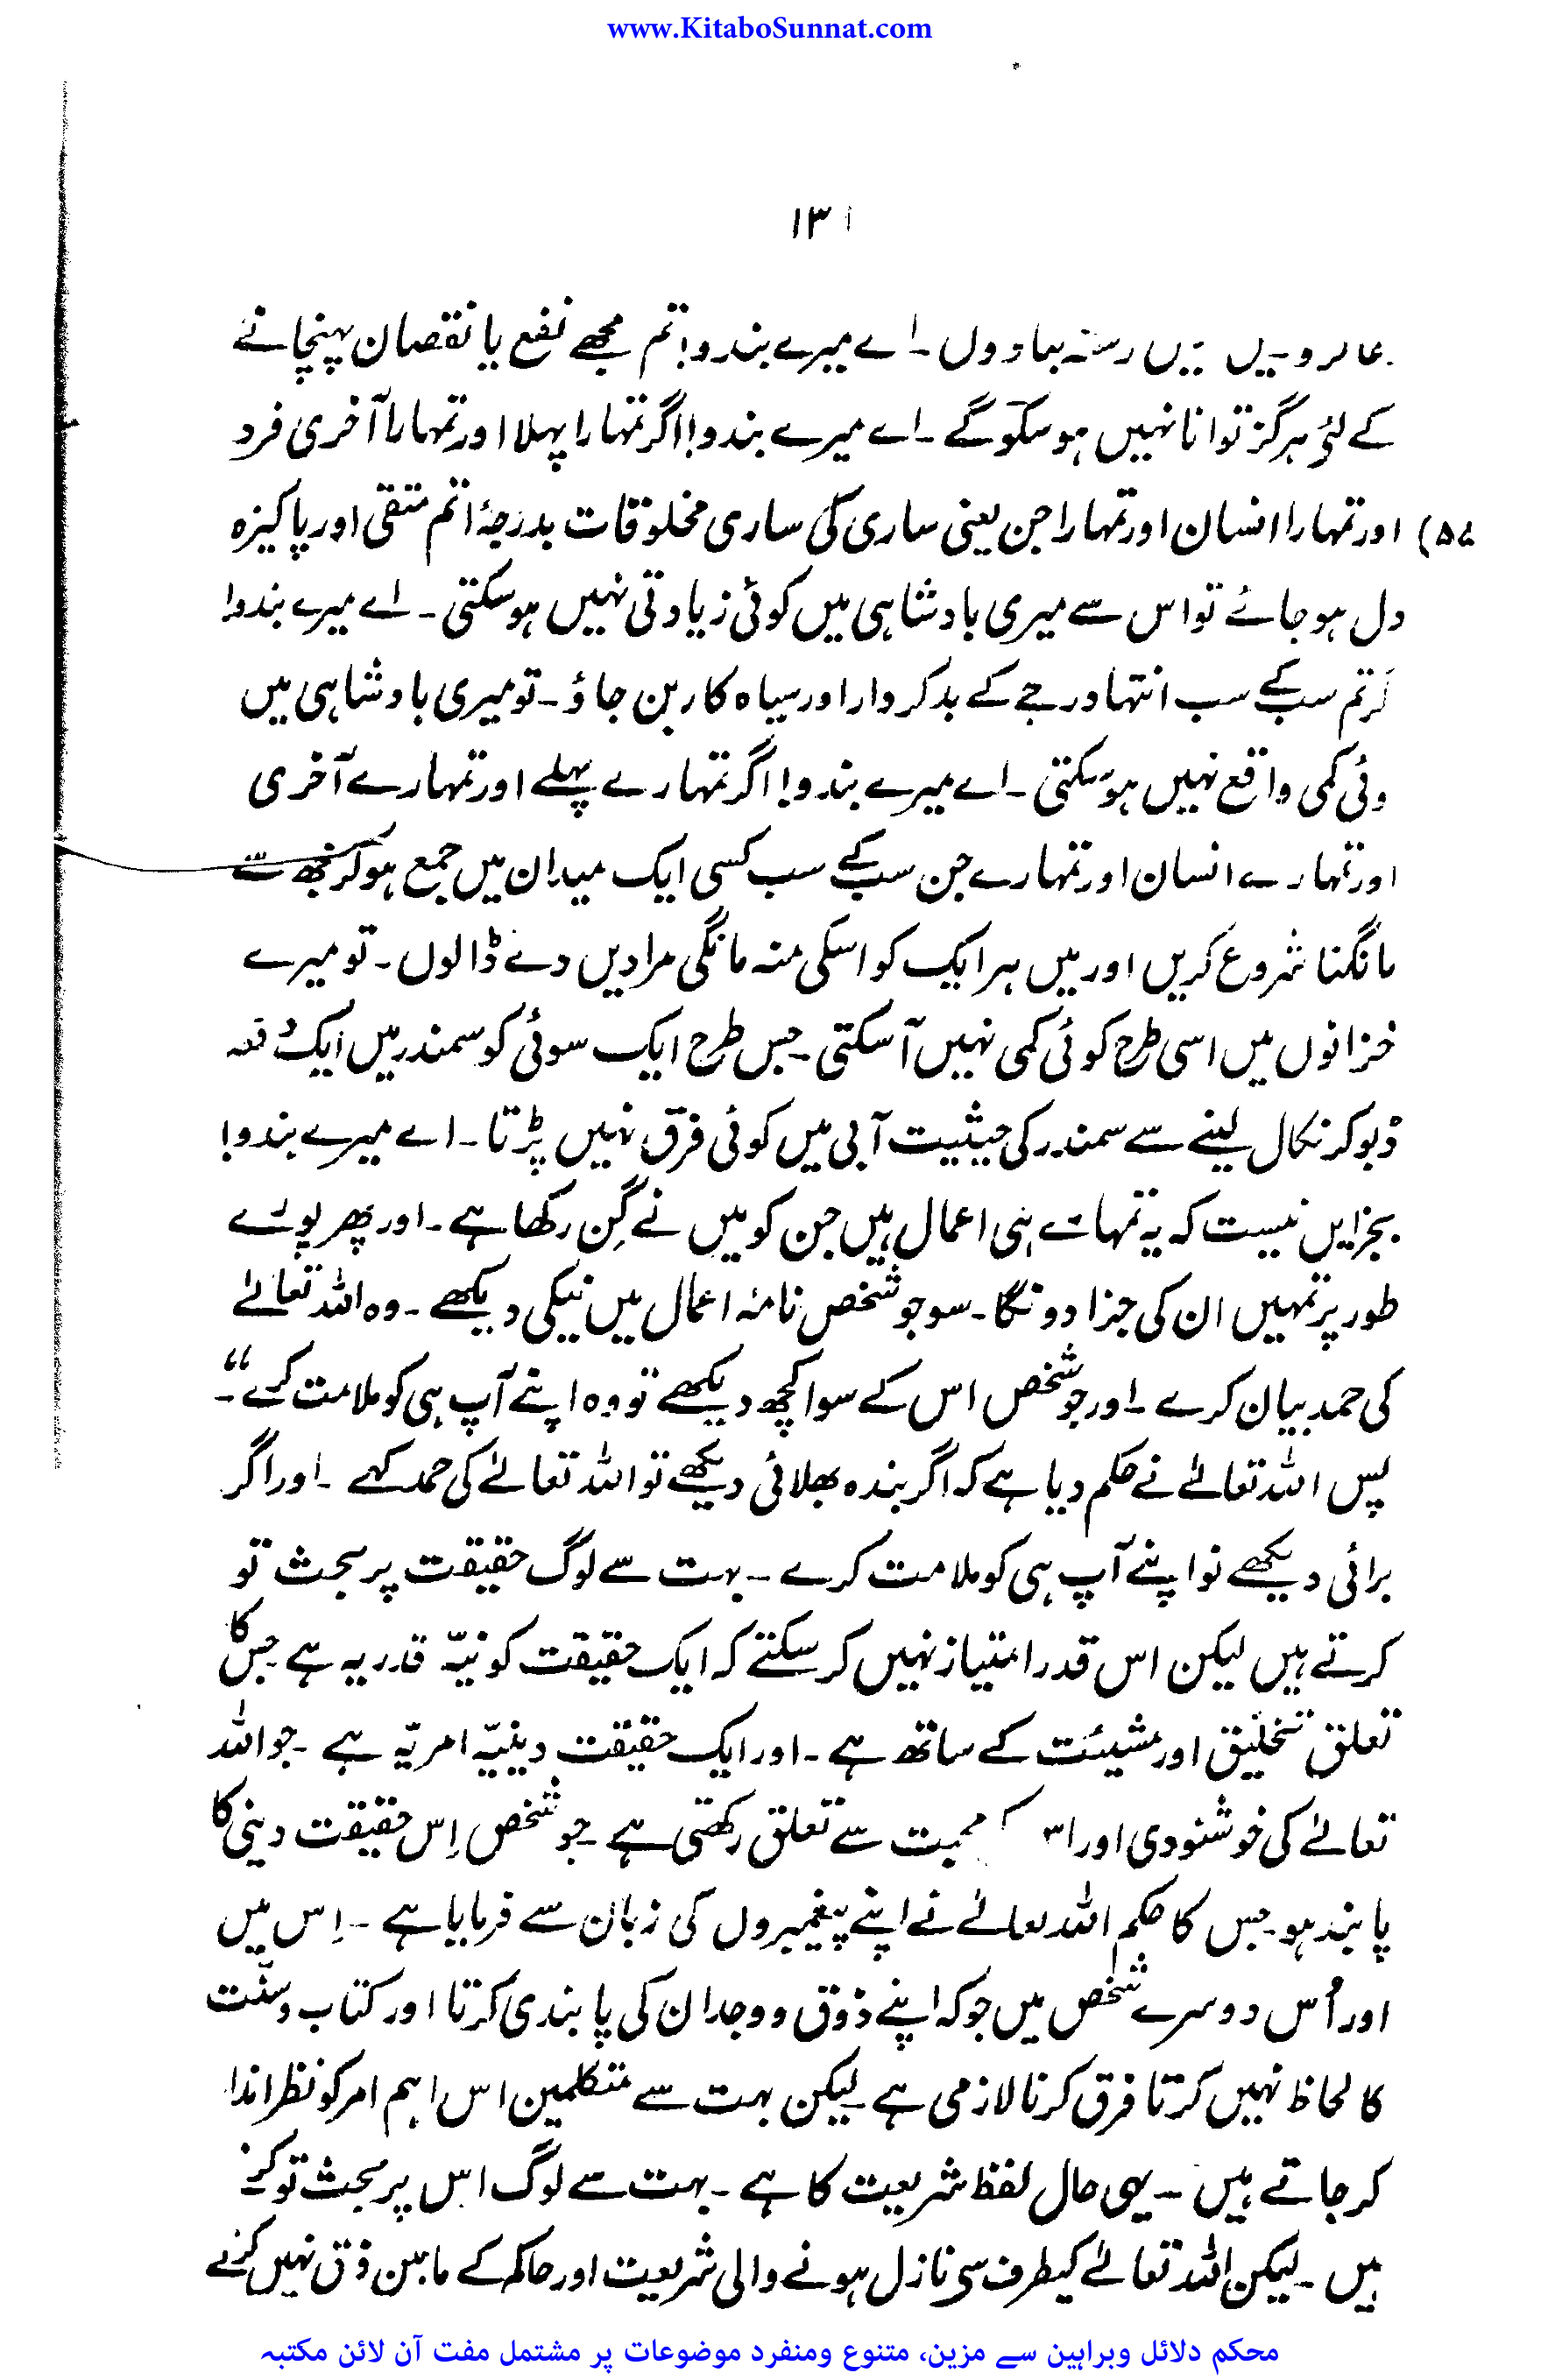 www.KitaboSunnat.com
۱۳۱
رستہ بتا دوں۔ اے میرے بندو! تم مجھے نفع یا نقصان پہنچانے
کے لئے ہرگز توانا نہیں ہو سکو گے۔ اے میرے بندو! اگر تمہارا پہلا اور تمہارا آخری فرد
اور تمہارا انسان اور تمہارا جن یعنی ساری کی ساری مخلوقات بدرجۂ اتم متقی اور پاکیزہ
دل ہو جائے تو اس سے میری بادشاہی میں کوئی زیادتی نہیں ہو سکتی۔ اے میرے بندو!
گر تم سب کے سب انتہا درجے کے بدکردار اور سیاہ کار بن جاؤ۔ تو میری بادشاہی میں
وئی کمی واقع نہیں ہو سکتی۔ اے میرے بندو! اگر تمہارے پہلے اور تمہارے آخری
اور تمہارے انسان اور تمہارے جن سب کے سب کسی ایک میدان میں جمع ہو کر مجھ سے
مانگنا شروع کریں اور میں ہر ایک کو اسکی منہ مانگی مرادیں دے ڈالوں۔ تو میرے
خزانوں میں اسی طرح کوئی کمی نہیں آ سکتی۔ جس طرح ایک سوئی کو سمندر میں ایک دفعہ
ڈبو کر نکال لینے سے سمندر کی حیثیت آبی میں کوئی فرق نہیں پڑتا۔ اے میرے بندو!
بجز ایں نیست کہ یہ تمہارے ہی اعمال ہیں جن کو میں نے گِن رکھا ہے۔ اور پھر پورے
طور پر تمہیں ان کی جزا دونگا۔ سو جو شخص نامۂ اعمال میں نیکی دیکھے۔ وہ اللہ تعالےٰ
کی حمد بیان کرے۔ اور جو شخص اس کے سوا کچھ دیکھے تو وہ اپنے آپ ہی کو ملامت کرے"۔
پس اللہ تعالےٰ نے حکم دیا ہے کہ اگر بندہ بھلائی دیکھے تو اللہ تعالےٰ کی حمد کہے۔ اور اگر
برائی دیکھے تو اپنے آپ ہی کو ملامت کرے۔ بہت سے لوگ حقیقت پر بحث تو
کرتے ہیں لیکن اس قدر امتیاز نہیں کر سکتے کہ ایک حقیقت کونیہّ قدریہ ہے جس کا
تعلق تخلیق اور مشیئت کے ساتھ ہے۔ اور ایک حقیقت دینیہّ امریہّ ہے۔ جو اللہ
تعالےٰ کی خوشنودی اور محبت سے تعلق رکھتی ہے۔ جو شخص اِس حقیقت دینی کا
پابند ہو۔ جس کا حکم اللہ تعالےٰ نے اپنے پیغمبروں کی زبان سے فرمایا ہے۔ اِس میں
اور اُس دوسرے شخص میں جو کہ اپنے ذوق و وجدان کی پابندی کرتا اور کتاب و سنّت
کا لحاظ نہیں کرتا فرق کرنا لازمی ہے۔ لیکن بہت سے متکلمین اس اہم امر کو نظر اندا
کر جاتے ہیں۔ یہی حال لفظ شریعت کا ہے۔ بہت سے لوگ اس پر بحث تو کرتے
ہیں۔ لیکن اللہ تعالےٰ کیطرف سی نازل ہونے والی شریعت اور حاکم کے مابین فرق نہیں کرتے
محکم دلائل وبراہین سے مزین، متنوع ومنفرد موضوعات پر مشتمل مفت آن لائن مکتبہ